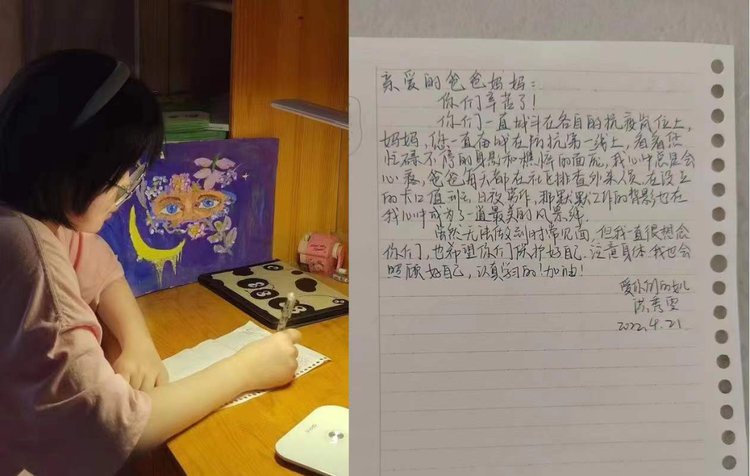 亲爱的爸爸妈妈：
你们辛苦了！
你们一直奋斗在各自的抗疫岗位上，
妈妈，您一直奋战在防抗第一线上，看着您
忙碌不停的身影和憔悴的面庞，我心中总是会
心疼，爸爸每天都在社区排查外来人员，在设立
的卡口值班，日夜劳作，那默默工作的背影也在
我心中成为了一道最美的风景线。
虽然无法做到时常见面，但我一直很想念
你们，也希望你们保护好自己，注意身体，我也会
照顾好自己，认真学习的！加油！
爱你们的女儿
2022.4.21